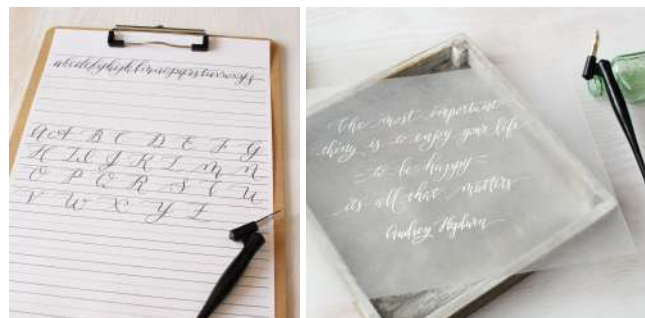 abcdefghijklmnopqrstuvwxyz
A A B C D E F G
H I J K L M N
O P Q R S T U
V W X Y Z
The most important
thing is to enjoy your life
to be happy
its all that matters
Audrey Hepburn